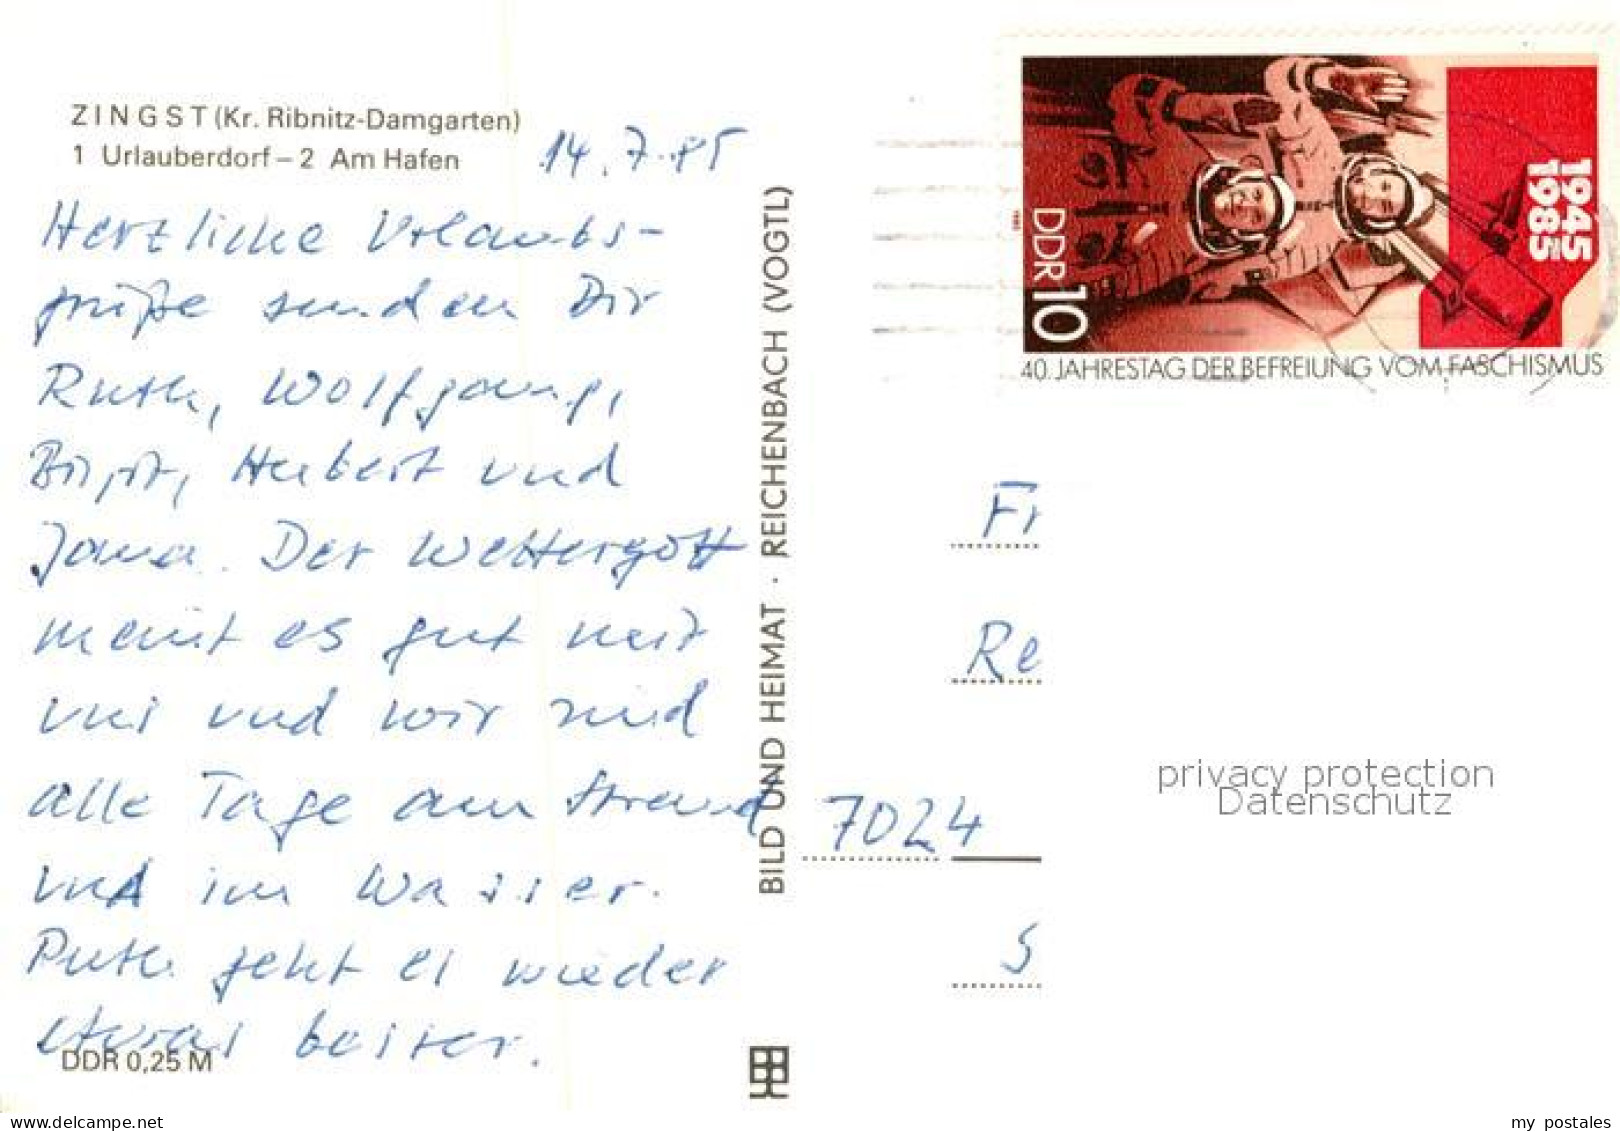 ZINGST (Kr. Ribnitz-Damgarten)
1 Urlauberdorf – 2 Am Hafen
14.7.85
Herzliche Urlaubs-
grüße senden Dir
Ruth, Wolfgang,
Birgit, Herbert und
Jana. Der Wettergott
meint es gut mit
uns und wir sind
alle Tage am Strand
und im Wasser.
Ruth geht es wieder
etwas besser.
DDR 0,25 M
BILD UND HEIMAT · REICHENBACH (VOGTL)
DDR 10
1985
1945
1985
40. JAHRESTAG DER BEFREIUNG VOM FASCHISMUS
Fr
Re
7024
S
privacy protection
Datenschutz
www.ansichtskartenversand.com
my postales